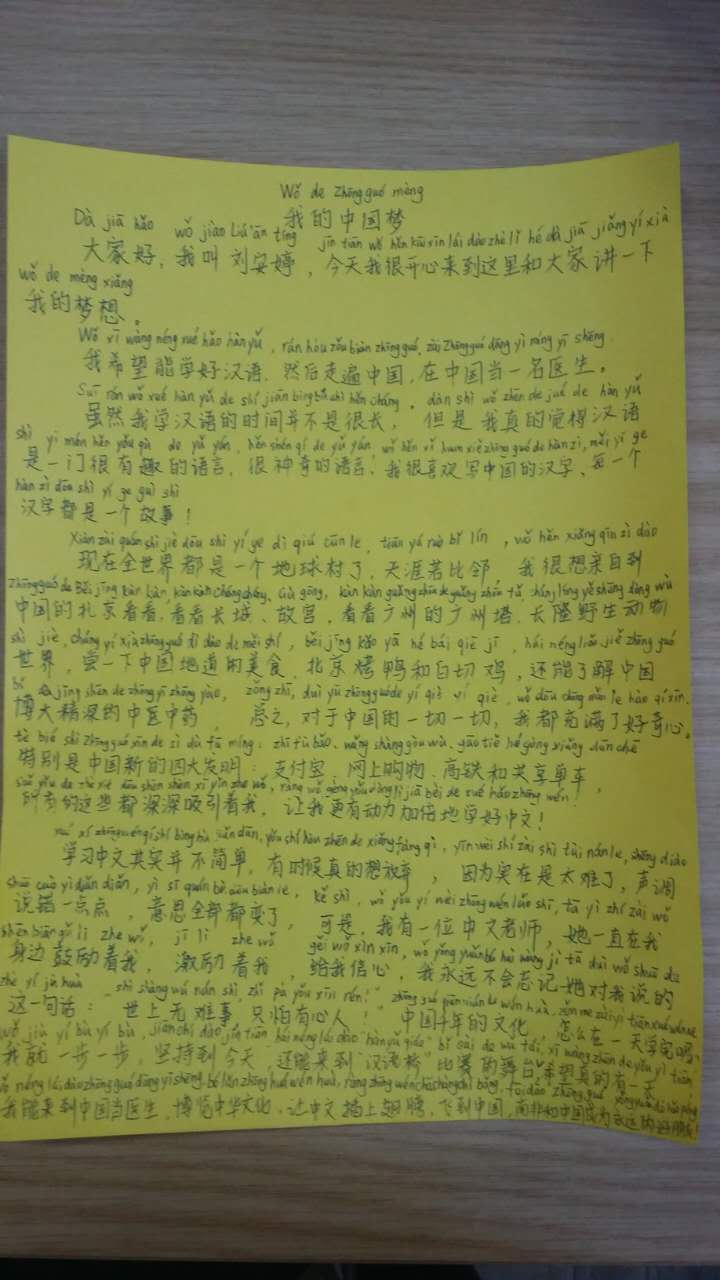 Wǒ de Zhōngguó mèng
我的中国梦
Dà jiā hǎo wǒ jiào Liú ān tíng jīn tiān wǒ hěn kāi xīn lái dào zhè lǐ hé dà jiā jiǎng yí xià
大家好，我叫刘安婷，今天我很开心来到这里和大家讲一下
wǒ de mèng xiǎng
我的梦想。
Wǒ xī wàng néng xué hǎo hàn yǔ, rán hòu zǒu biàn zhōng guó, zài Zhōng guó dāng yì míng yī shēng.
我希望能学好汉语，然后走遍中国，在中国当一名医生。
Suī rán wǒ xué hàn yǔ de shí jiān bìng bú shì hěn cháng, dàn shì wǒ zhēn de jué de hàn yǔ
虽然我学汉语的时间并不是很长，但是我真的觉得汉语
shì yì mén hěn yǒu qù de yǔ yán, hěn shén qí de yǔ yán, wǒ hěn xǐ huan xiě zhōng guó de hàn zì, měi yí ge
是一门很有趣的语言，很神奇的语言！我很喜欢写中国的汉字、每一个
hàn zì dōu shì yí ge gù shi
汉字都是一个故事！
Xiàn zài quán shì jiè dōu shì yí ge dì qiú cūn le, tiān yá ruò bǐ lín, wǒ hěn xiǎng qīn zì dào
现在全世界都是一个地球村了，天涯若比邻，我很想亲自到
Zhōng guó de Běi jīng kàn kàn, kàn kàn Cháng chéng, Gù gōng, kàn kàn guǎng zhōu de guǎng zhōu tǎ, cháng lóng yě shēng dòng wù
中国的北京看看，看看长城、故宫，看看广州的广州塔、长隆野生动物
shì jiè, cháng yí xià zhōng guó dì dào de měi shí, běi jīng kǎo yā hé bái qiē jī, hái néng liǎo jiě zhōng guó
世界，尝一下中国地道的美食，北京烤鸭和白切鸡，还能了解中国
bó dà jīng shēn de zhōng yī zhōng yào, zǒng zhī, duì yú zhōng guó de yí qiè yí qiè, wǒ dōu chōng mǎn le hào qí xīn.
博大精深的中医中药，总之，对于中国的一切一切，我都充满了好奇心。
tè bié shì zhōng guó xīn de sì dà fā míng: zhī fù bǎo, wǎng shàng gòu wù, gāo tiě hé gòng xiǎng dān chē
特别是中国新的四大发明：支付宝、网上购物、高铁和共享单车，
suǒ yǒu de zhè xiē dōu shēn shēn xī yǐn zhe wǒ, ràng wǒ gèng yǒu dòng lì jiā bèi de xué hǎo zhōng wén!
所有的这些都深深吸引着我，让我更有动力加倍地学好中文！
xué xí zhōng wén qí shí bìng bù jiǎn dān, yǒu shí hòu zhēn de xiǎng fàng qì, yīn wèi shí zài shì tài nán le, shēng diào
学习中文其实并不简单，有时候真的想放弃，因为实在是太难了，声调
shuō cuò yì diǎn diǎn, yì si quán bù dōu biàn le, kě shì, wǒ yǒu yí wèi zhōng wén lǎo shī, tā yì zhí zài wǒ
说错一点点，意思全部都变了，可是，我有一位中文老师，她一直在我
shēn biān gǔ lì zhe wǒ, jī lì zhe wǒ gěi wǒ xìn xīn, wǒ yǒng yuǎn bú huì wàng jì tā duì wǒ shuō de
身边鼓励着我，激励着我，给我信心，我永远不会忘记她对我说的
zhè yí jù huà shì shàng wú nán shì zhǐ pà yǒu xīn rén!" zhōng guó qiān nián de wén huà, zěn me zài yì tiān xué wán ne
这一句话："世上无难事，只怕有心人！"中国千年的文化，怎么在一天学完呢，
wǒ jiù yí bù yí bù, jiān chí dào jīn tiān hái néng lái dào "hàn yǔ qiáo" bǐ sài de wǔ tái, xī wàng zhēn de yǒu yì tiān
我就一步一步，坚持到今天，还能来到"汉语桥"比赛的舞台，希望真的有一天
wǒ néng lái dào zhōng guó dāng yī shēng, bó lǎn zhōng huá wén huà, ràng zhōng wén chā shàng chì bǎng, fēi dào zhōng guó
我能来到中国当医生，博览中华文化，让中文插上翅膀，飞到中国，南非和中国成为永远的好朋友！